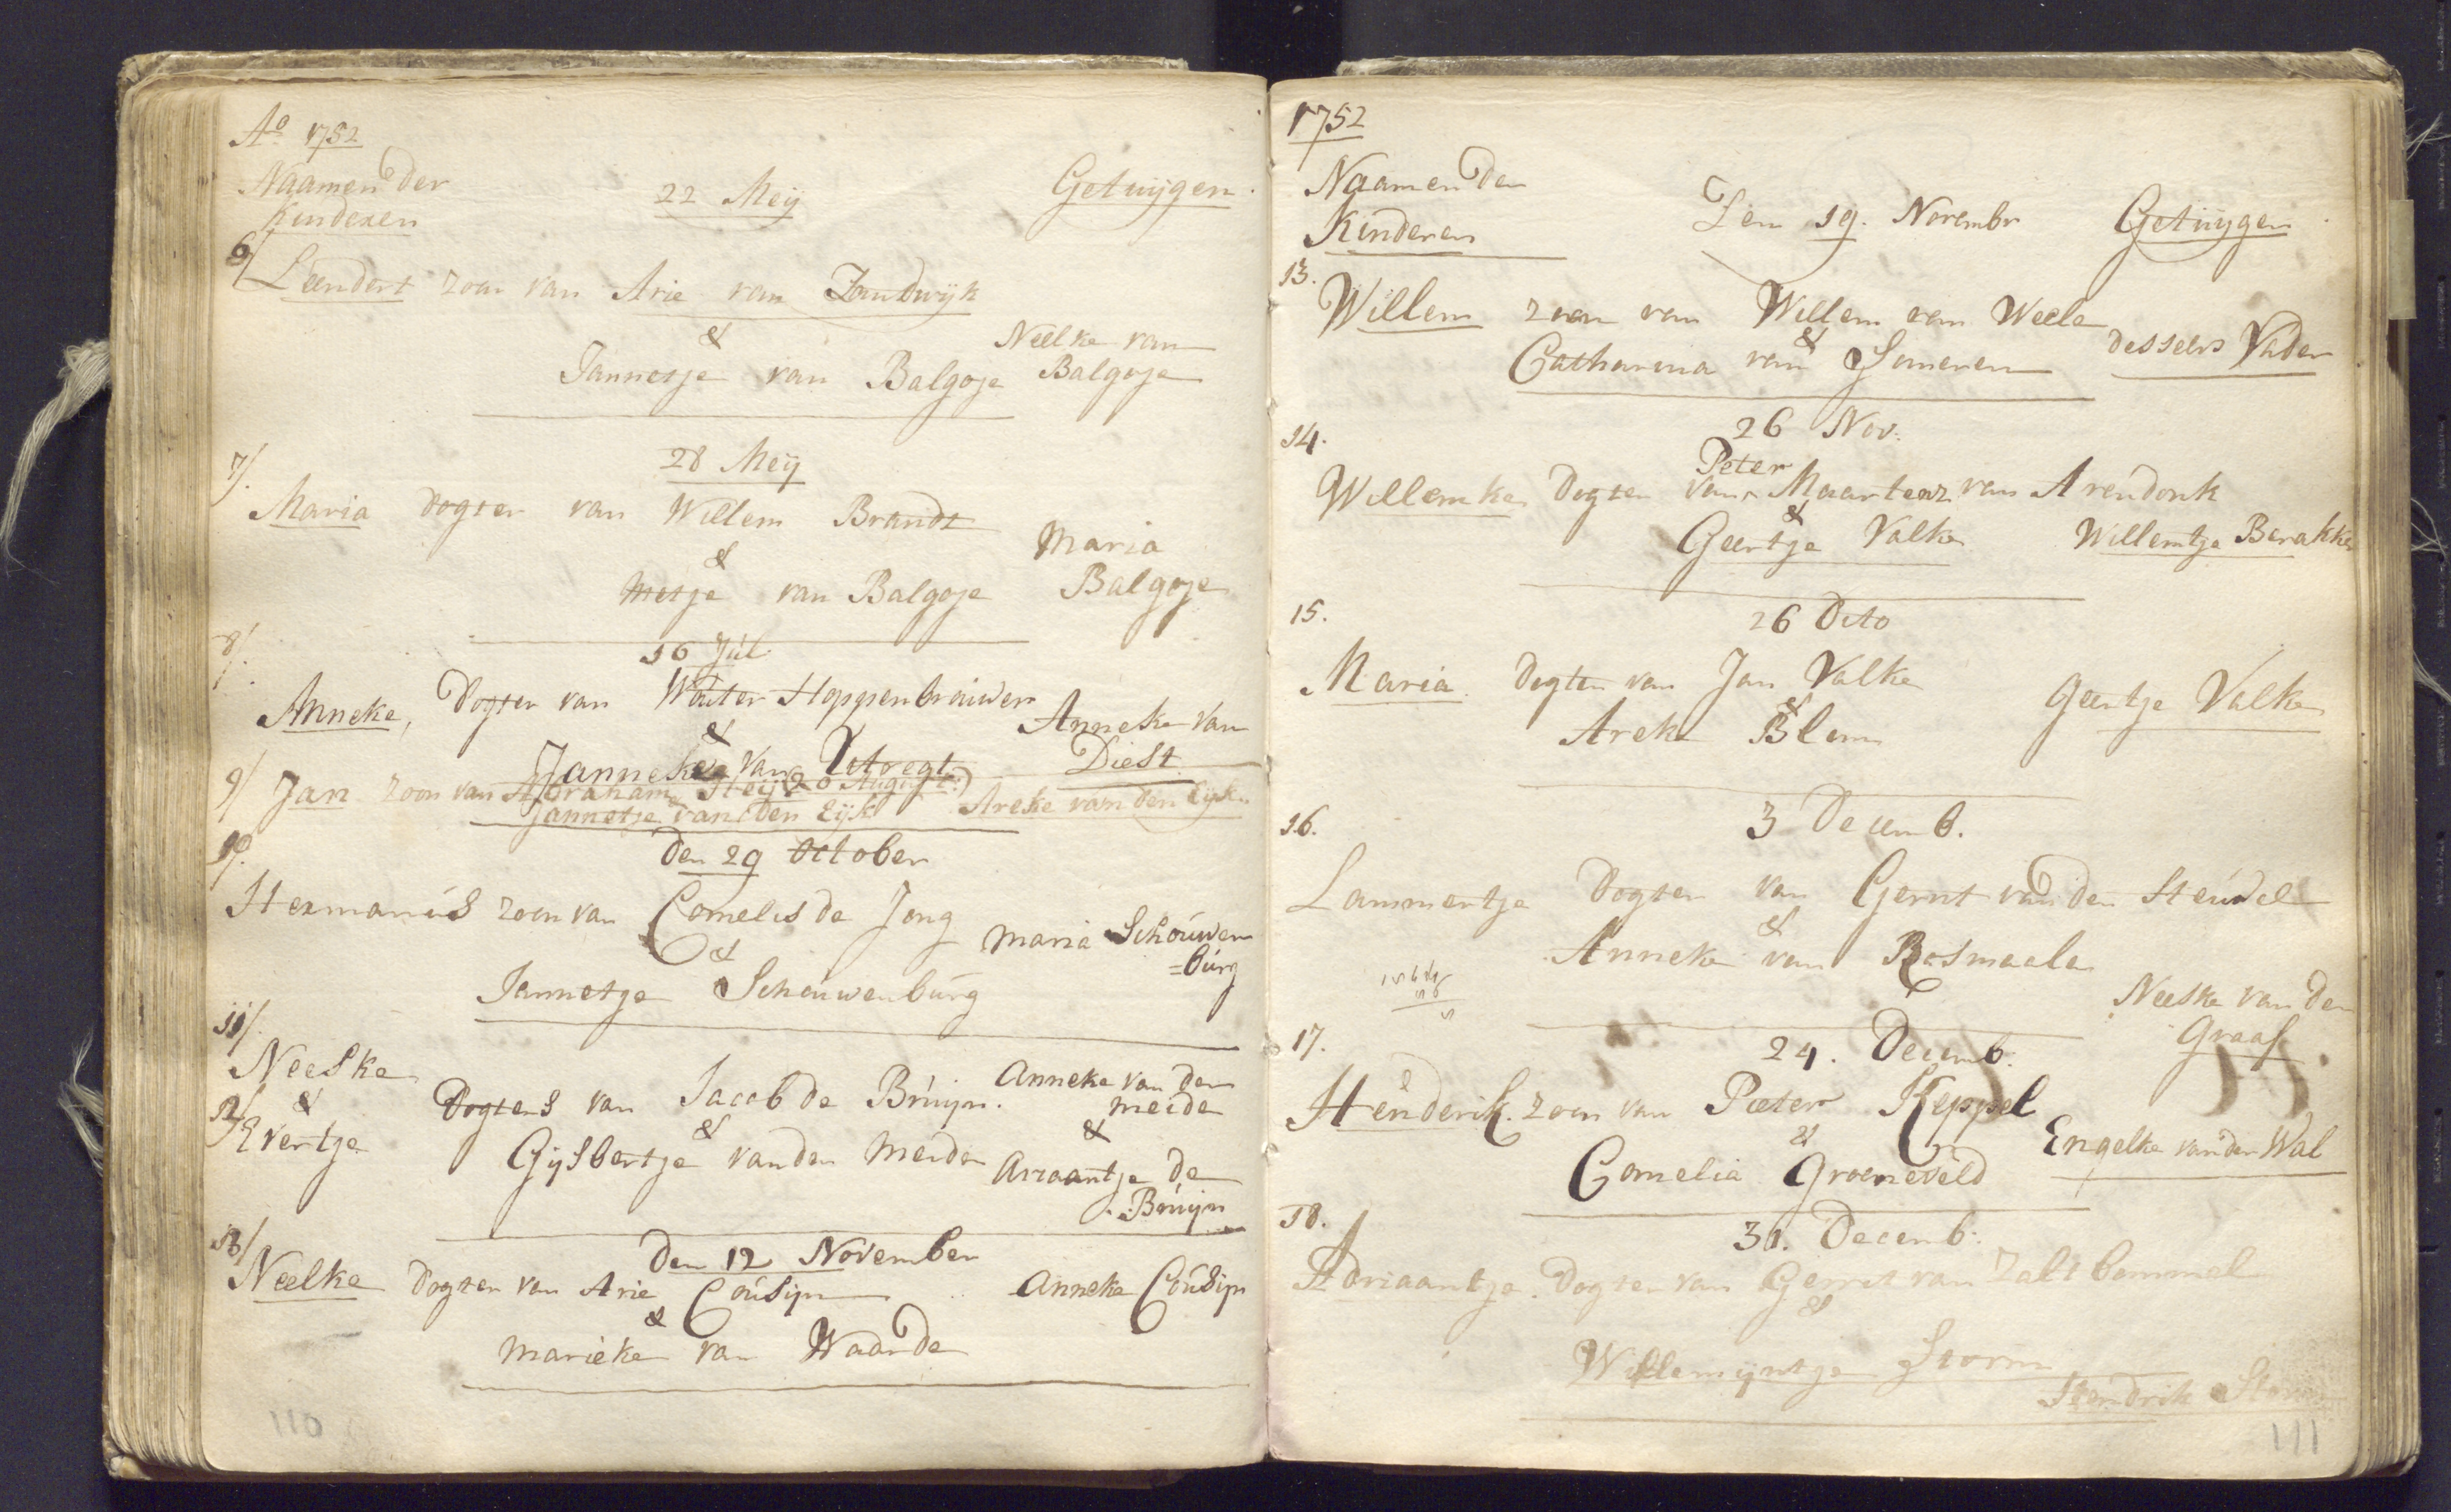 Ao 1752
Naamen der
Kinderen
22 Meij
Getuijgen.
6/
Leendert zoon van Arie van Zandwijk
&
Jannetje van Balgoje
Neelke van
Balgoje
28 Meij
7/.
Maria dogter van Willem Brandt
&
Metje van Balgoje
Maria
Balgoje
16 Júl
8/.
Anneke, Dogter van Wouter Hoppenbrouwer
&
Janneke van
Anneke van
Diest
9/ Jan zoon van Abraham (20 August.)
Jannetje van den Eijk
Areke van den Eijk
den 29 October
10/.
Hermanús zoon van Cornelis de Jong
&
Jannetje Schouwenbúrg
Maria Schoúwen
=búrg
11/.
Neeske
12/ &
Evertje
Dogters van Jacob de Brúijn.
&
Gijsbertje van den Meiden
Anneke van der
meide
&
Ariaantje de
Brúijn
den 12 November
13/
Neelke Dogter van Arie Coúsijn
&
Marieke van Waarde
Anneke Coúsijn
110
1752
Naamen der
Kinderen
Den 19. Novembr
Getuijgen
13.
Willem zoon van Willem van Weele
&
Catharina van Someren
desselvs Vader
26 Nov.
14.
Peter
Willemke Dogter van Maartenz van Arendonk
&
Geertje Valke
Willemtje Berakke
26 Dito
15.
Maria Dogter van Jan Valke
&
Areke Blom
Geertje Valke
3 Decemb.
16.
Lammertje Dogter van Gerrit van den Heúvel
&
Anneke van Rosmaele
Neeske van de
Graaf
24. Decemb.
17.
Henderik zoon van Pieter Keppel
&
Cornelia Groeneveld
Engelke van der Wal
31. Decemb.
18.
Adriaantje Dogter van Gerrit van Zaltbommel
&
Willemijntje Storm
Hendrik Storm
111